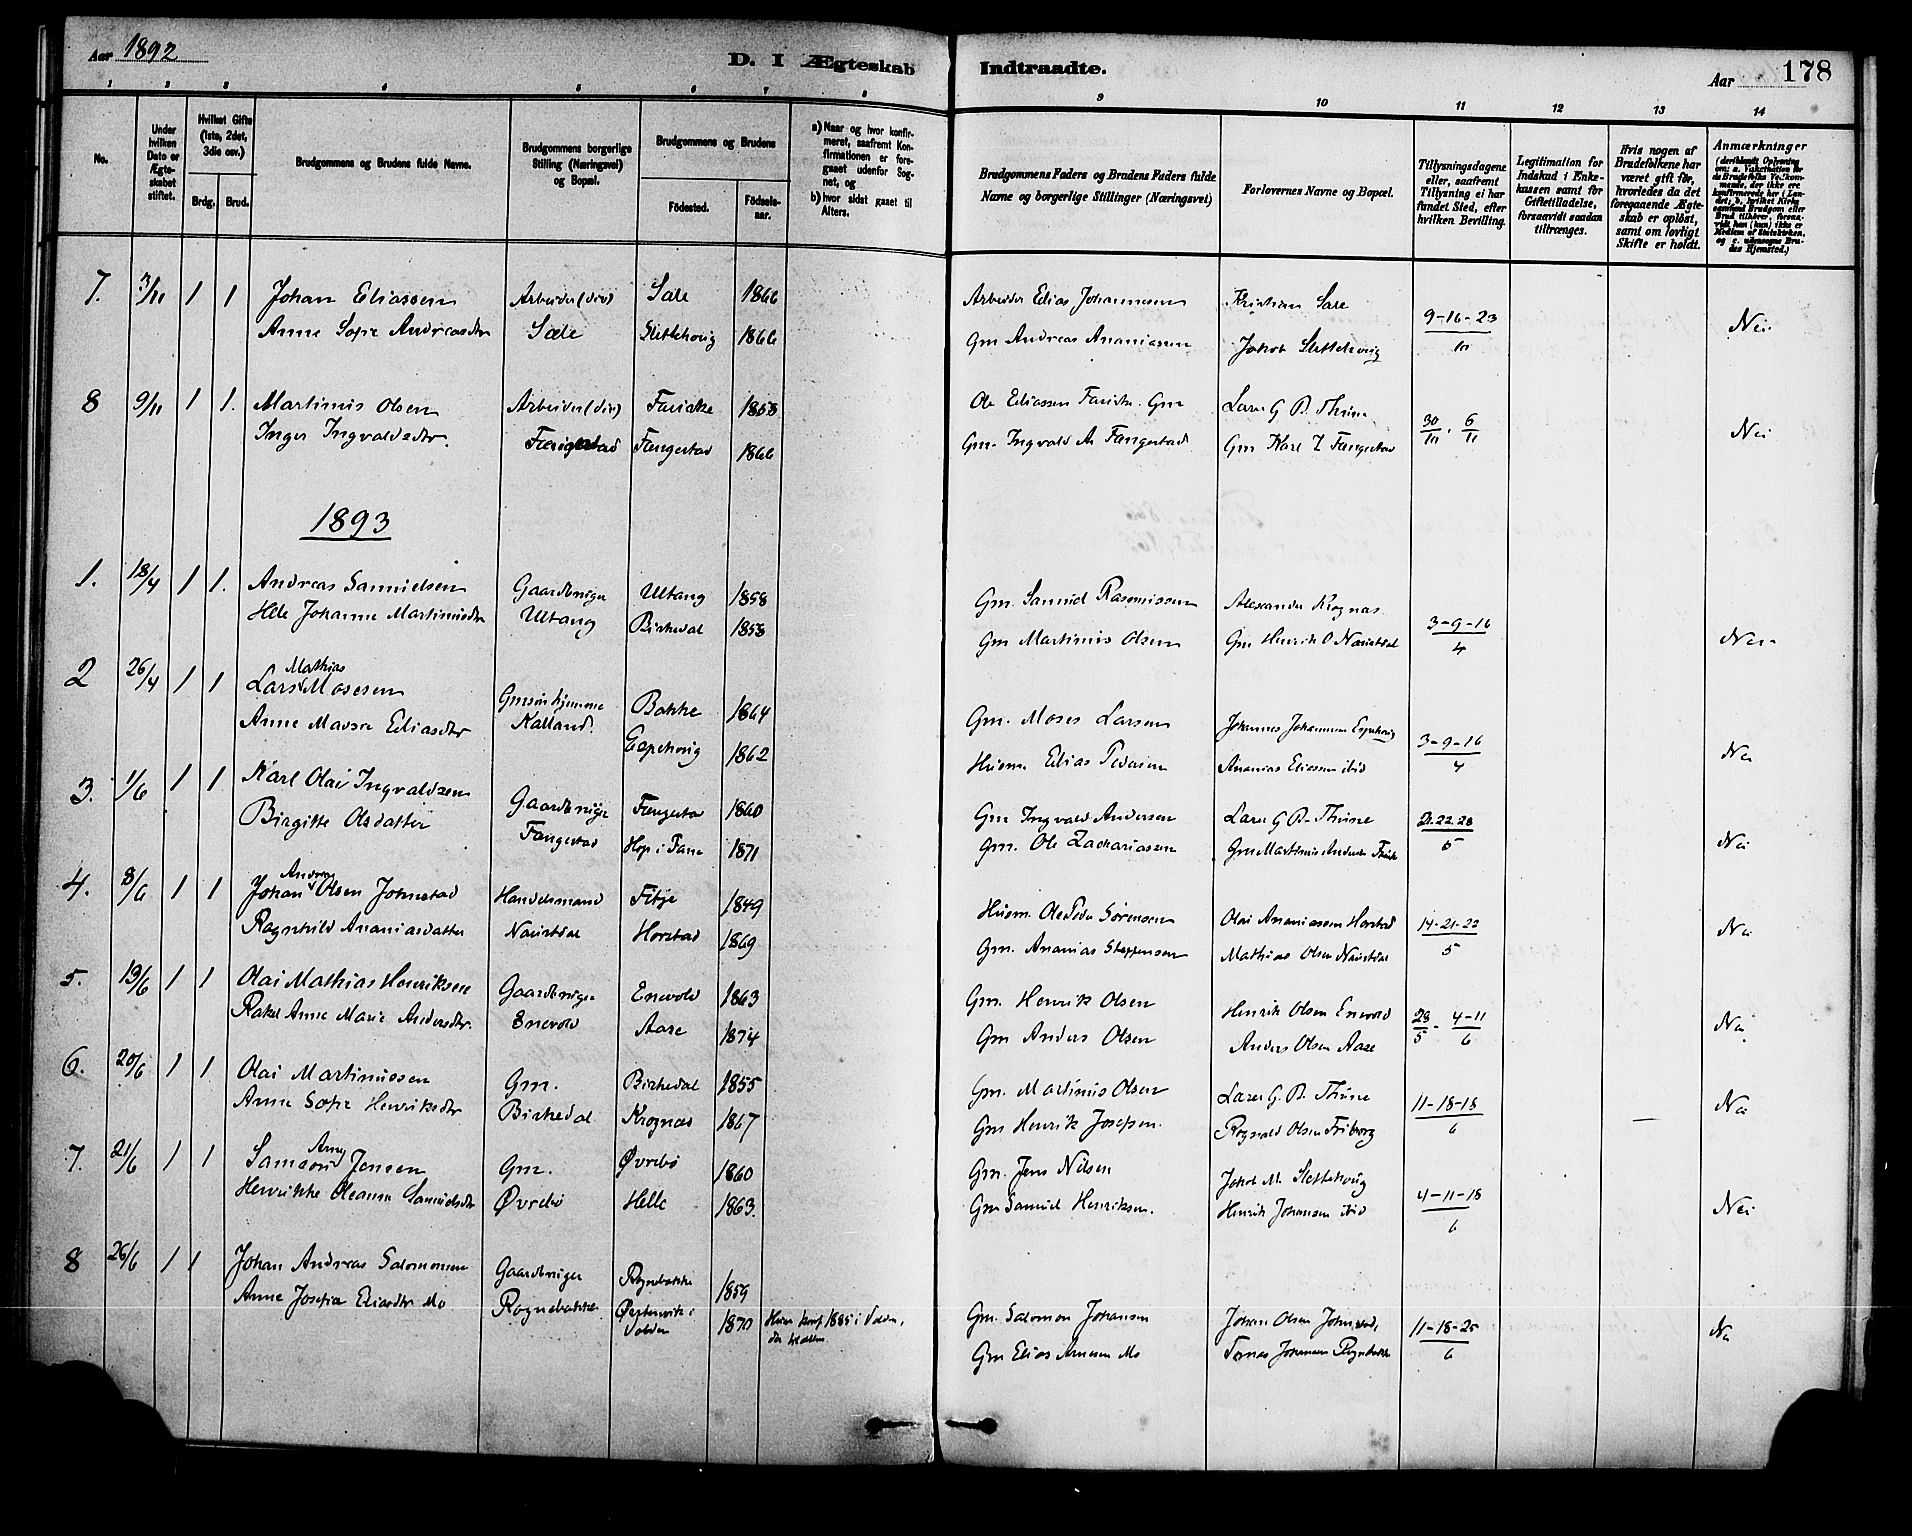 Aar 1892
D. I Ægteskab Indtraadte.
Aar 178
1 2 3 4 5 6 7 8 9 10 11 12 13 14
No.
Under hvilken Dato er Ægteskabet stiftet.
Hvilket Gifte (1ste, 2det, 3die osv.)
Brdg. Brud.
Brudgommens og Brudens fulde Navne.
Brudgommens borgerlige Stilling (Næringsvei) og Bopæl.
Brudgommens og Brudens
Fødested. Fødselsaar.
a) Naar og hvor konfirmeret, saafremt Konfirmationen er foregaaet udenfor Sognet, og
b) hvor sidst gaaet til Alters.
Brudgommens Faders og Brudens Faders fulde Navne og borgerlige Stillinger (Næringsvei)
Forlovernes Navne og Bopæl.
Tillysningsdagene eller, saafremt Tillysning ei har fundet Sted, efter hvilken Bevilling.
Legitimation for Indskud i Enkekassen samt for Giftetilladelse, forsaavidt saadan tiltrænges.
Hvis nogen af Brudefolkene har været gift før, hvorledes da det foregaaende Ægteskab er opløst, samt om lovligt Skifte er holdt.
Anmærkninger
7. 3/11 1 1 Johan Eliassen Arbeider (div) Sæle 1866 Arbeider Elias Johannesen Kristian Sæle 9-16-23/10 Nei
Anne Sofie Andreasdtr Sæle Slettehoug 1866 Gm Andreas Ananiassen Jakob Slettehoug
8 9/11 1 1. Martinus Olsen Arbeider (div) 1858 Ole Eliassen Gm Lars G B Thune 30/10 . 6/11 Nei
Inger Ingvaldsdtr. Fangestad Fangestad 1866 Gm. Ingvald A Fangestad Gm Karl I Fangestad
1893
1. 18/4 1 1. Andreas Samuelsen Gaardbruger Ultang 1858 Gm. Samuel Rasmussen Alexander Krognæs. 3-9-16/4 Nei
Helle Johanne Martinusdtr Ultang Birkedal 1858 Gm Martinus Olsen Gm Henrik O Naustdal
2 26/4 1 1 Lars Mathias Mosesen Gmsøn hjemme Bakke 1864 Gm. Moses Larsen Johannes Johannesen Espehoug 3-9-16/4 Nei
Anne Eliasdtr Kalland. Espehoug 1862 Husm. Elias Pedersen Ananias Eliassen ibid
3. 1/6 1 1 Karl Olai Ingvaldsen Gaardbruger Fangestad 1860 Gm Ingvald Andersen Lars G B. Thune 21.22.28/5 Nei
Birgitte Olsdatter Fangestad Hop i Fane 1871 Gm. Ole Zachariassen Gm Martinus Andersen
4. 8/6 1 1 Johan Andreas Olsen Johnstad Handelsmand Fitje 1849 Husm. Ole Peder Sørensen Olai Ananiassen Horstad 14-21-22/5 Nei
Ragnhild Ananiasdatter Naustdal Horstad 1869 Gm. Ananias Steffensen Mathias Olsen Naustdal
5. 13/6 1 1 Olai Mathias Henriksen Gaardbruger Enevold 1863 Gm. Henrik Olsen Henrik Olsen Enevold 28/5 - 4-11/6 Nei
Rakel Anne Marie Andersdtr. Enevold Aase 1874 Gm Anders Olsen Anders Olsen Aase
6. 20/6 1 1 Olai Martinussen Gm. Birkedal 1855 Gm. Martinus Olsen Lars G. B. Thune 11-18-18/6 — Nei
Anne Sofie Henriksdtr Birkedal Krognæs 1867 Gm Henrik Josefsen Rognald Olsen Friborg
7. 21/6 1 1 Samson Jensen Gm. Øvrebø 1860 Gm. Jens Nilsen Jakob M. Slettehoug 4-11-18/6 Nei
Henrikke Oleanna Samuelsdtr Øvrebø Helle 1863. Gm Samuel Henriksen. Henrik Johansen ibid
8 26/6 1 1 Johan Andreas Salomonsen Gaardbruger Rognebakke 1859 Gm. Salomon Johansen Johan Olsen Johnstad, 11-18-25/6 Nei
Anne Josefine Eliasdtr Mo Rognebakke Østenvik i Volden 1870 1885 i Volden, Gm Elias Arnesen Mo Tomas Johannesen Rognebakke